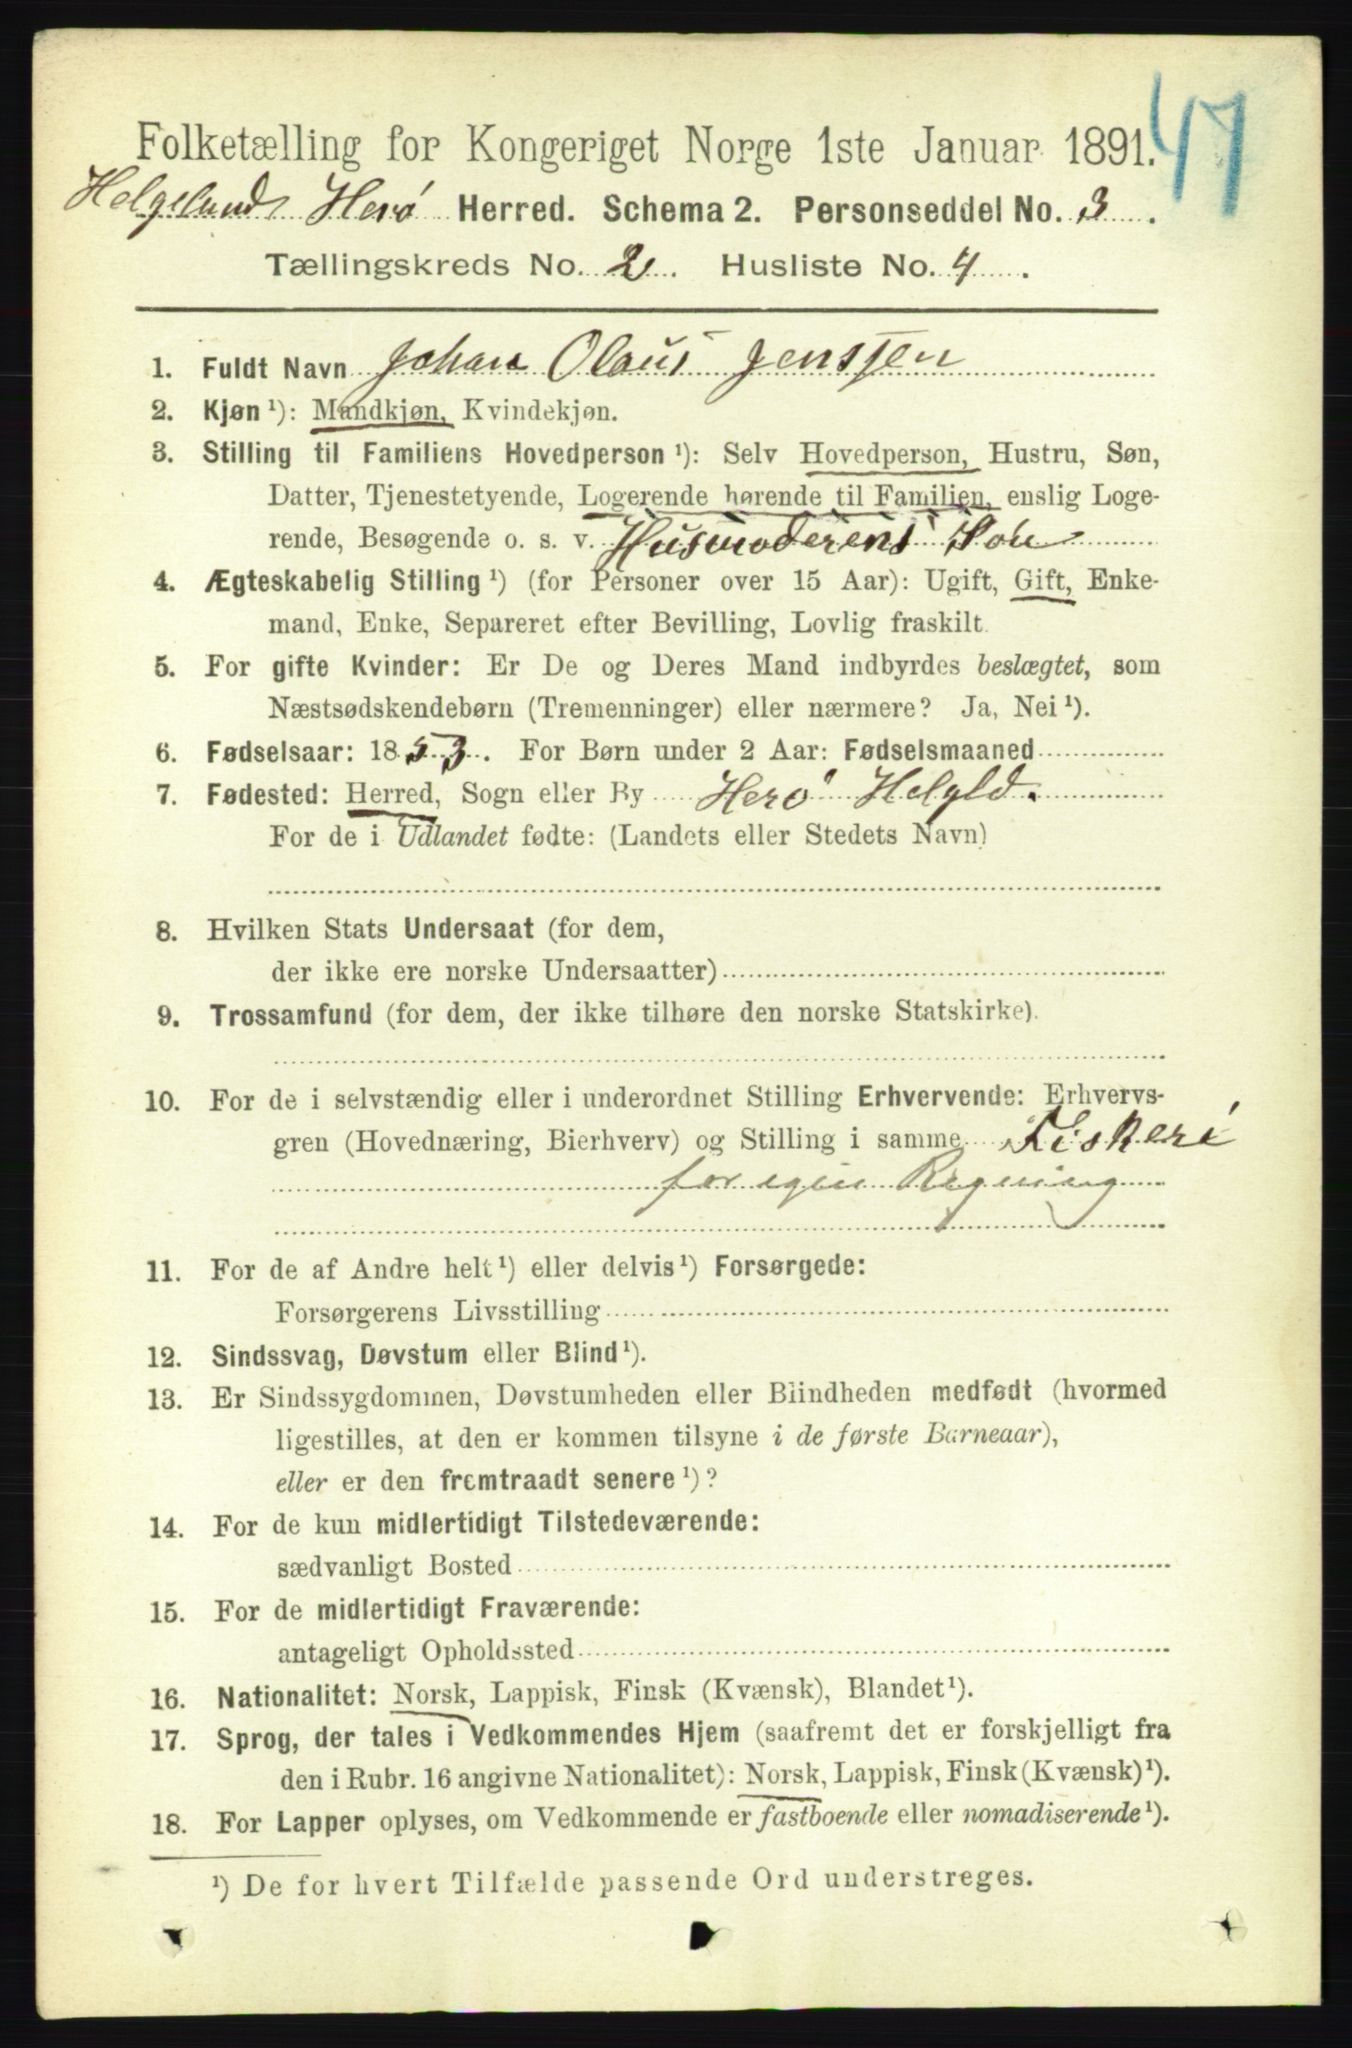 47
Folketælling for Kongeriget Norge 1ste Januar 1891.
Helgelands Herø Herred. Schema 2. Personseddel No. 3.
Tællingskreds No. 2. Husliste No. 4.
1. Fuldt Navn Johan Olaus Jenssen
2. Kjøn ¹): Mandkjøn, Kvindekjøn.
3. Stilling til Familiens Hovedperson ¹): Selv Hovedperson, Hustru, Søn,
Datter, Tjenestetyende, Logerende hørende til Familien, enslig Loge-
rende, Besøgende o. s. v. Husmoderens Søn
4. Ægteskabelig Stilling ¹) (for Personer over 15 Aar): Ugift, Gift, Enke-
mand, Enke, Separeret efter Bevilling, Lovlig fraskilt.
5. For gifte Kvinder: Er De og Deres Mand indbyrdes beslægtet, som
Næstsødskendebørn (Tremenninger) eller nærmere? Ja, Nei ¹).
6. Fødselsaar: 1853. For Børn under 2 Aar: Fødselsmaaned
7. Fødested: Herred, Sogn eller By Herø Helgld.
For de i Udlandet fødte: (Landets eller Stedets Navn)
8. Hvilken Stats Undersaat (for dem,
der ikke ere norske Undersaatter)
9. Trossamfund (for dem, der ikke tilhøre den norske Statskirke).
10. For de i selvstændig eller i underordnet Stilling Erhvervende: Erhvervs-
gren (Hovednæring, Bierhverv) og Stilling i samme Fiskeri
for egen Regning
11. For de af Andre helt ¹) eller delvis ¹) Forsørgede:
Forsørgerens Livsstilling
12. Sindssvag, Døvstum eller Blind ¹).
13. Er Sindssygdommen, Døvstumheden eller Blindheden medfødt (hvormed
ligestilles, at den er kommen tilsyne i de første Barneaar),
eller er den fremtraadt senere ¹)?
14. For de kun midlertidigt Tilstedeværende:
sædvanligt Bosted
15. For de midlertidigt Fraværende:
antageligt Opholdssted
16. Nationalitet: Norsk, Lappisk, Finsk (Kvænsk), Blandet ¹).
17. Sprog, der tales i Vedkommendes Hjem (saafremt det er forskjelligt fra
den i Rubr. 16 angivne Nationalitet): Norsk, Lappisk, Finsk (Kvænsk) ¹).
18. For Lapper oplyses, om Vedkommende er fastboende eller nomadiserende ¹).
¹) De for hvert Tilfælde passende Ord understreges.